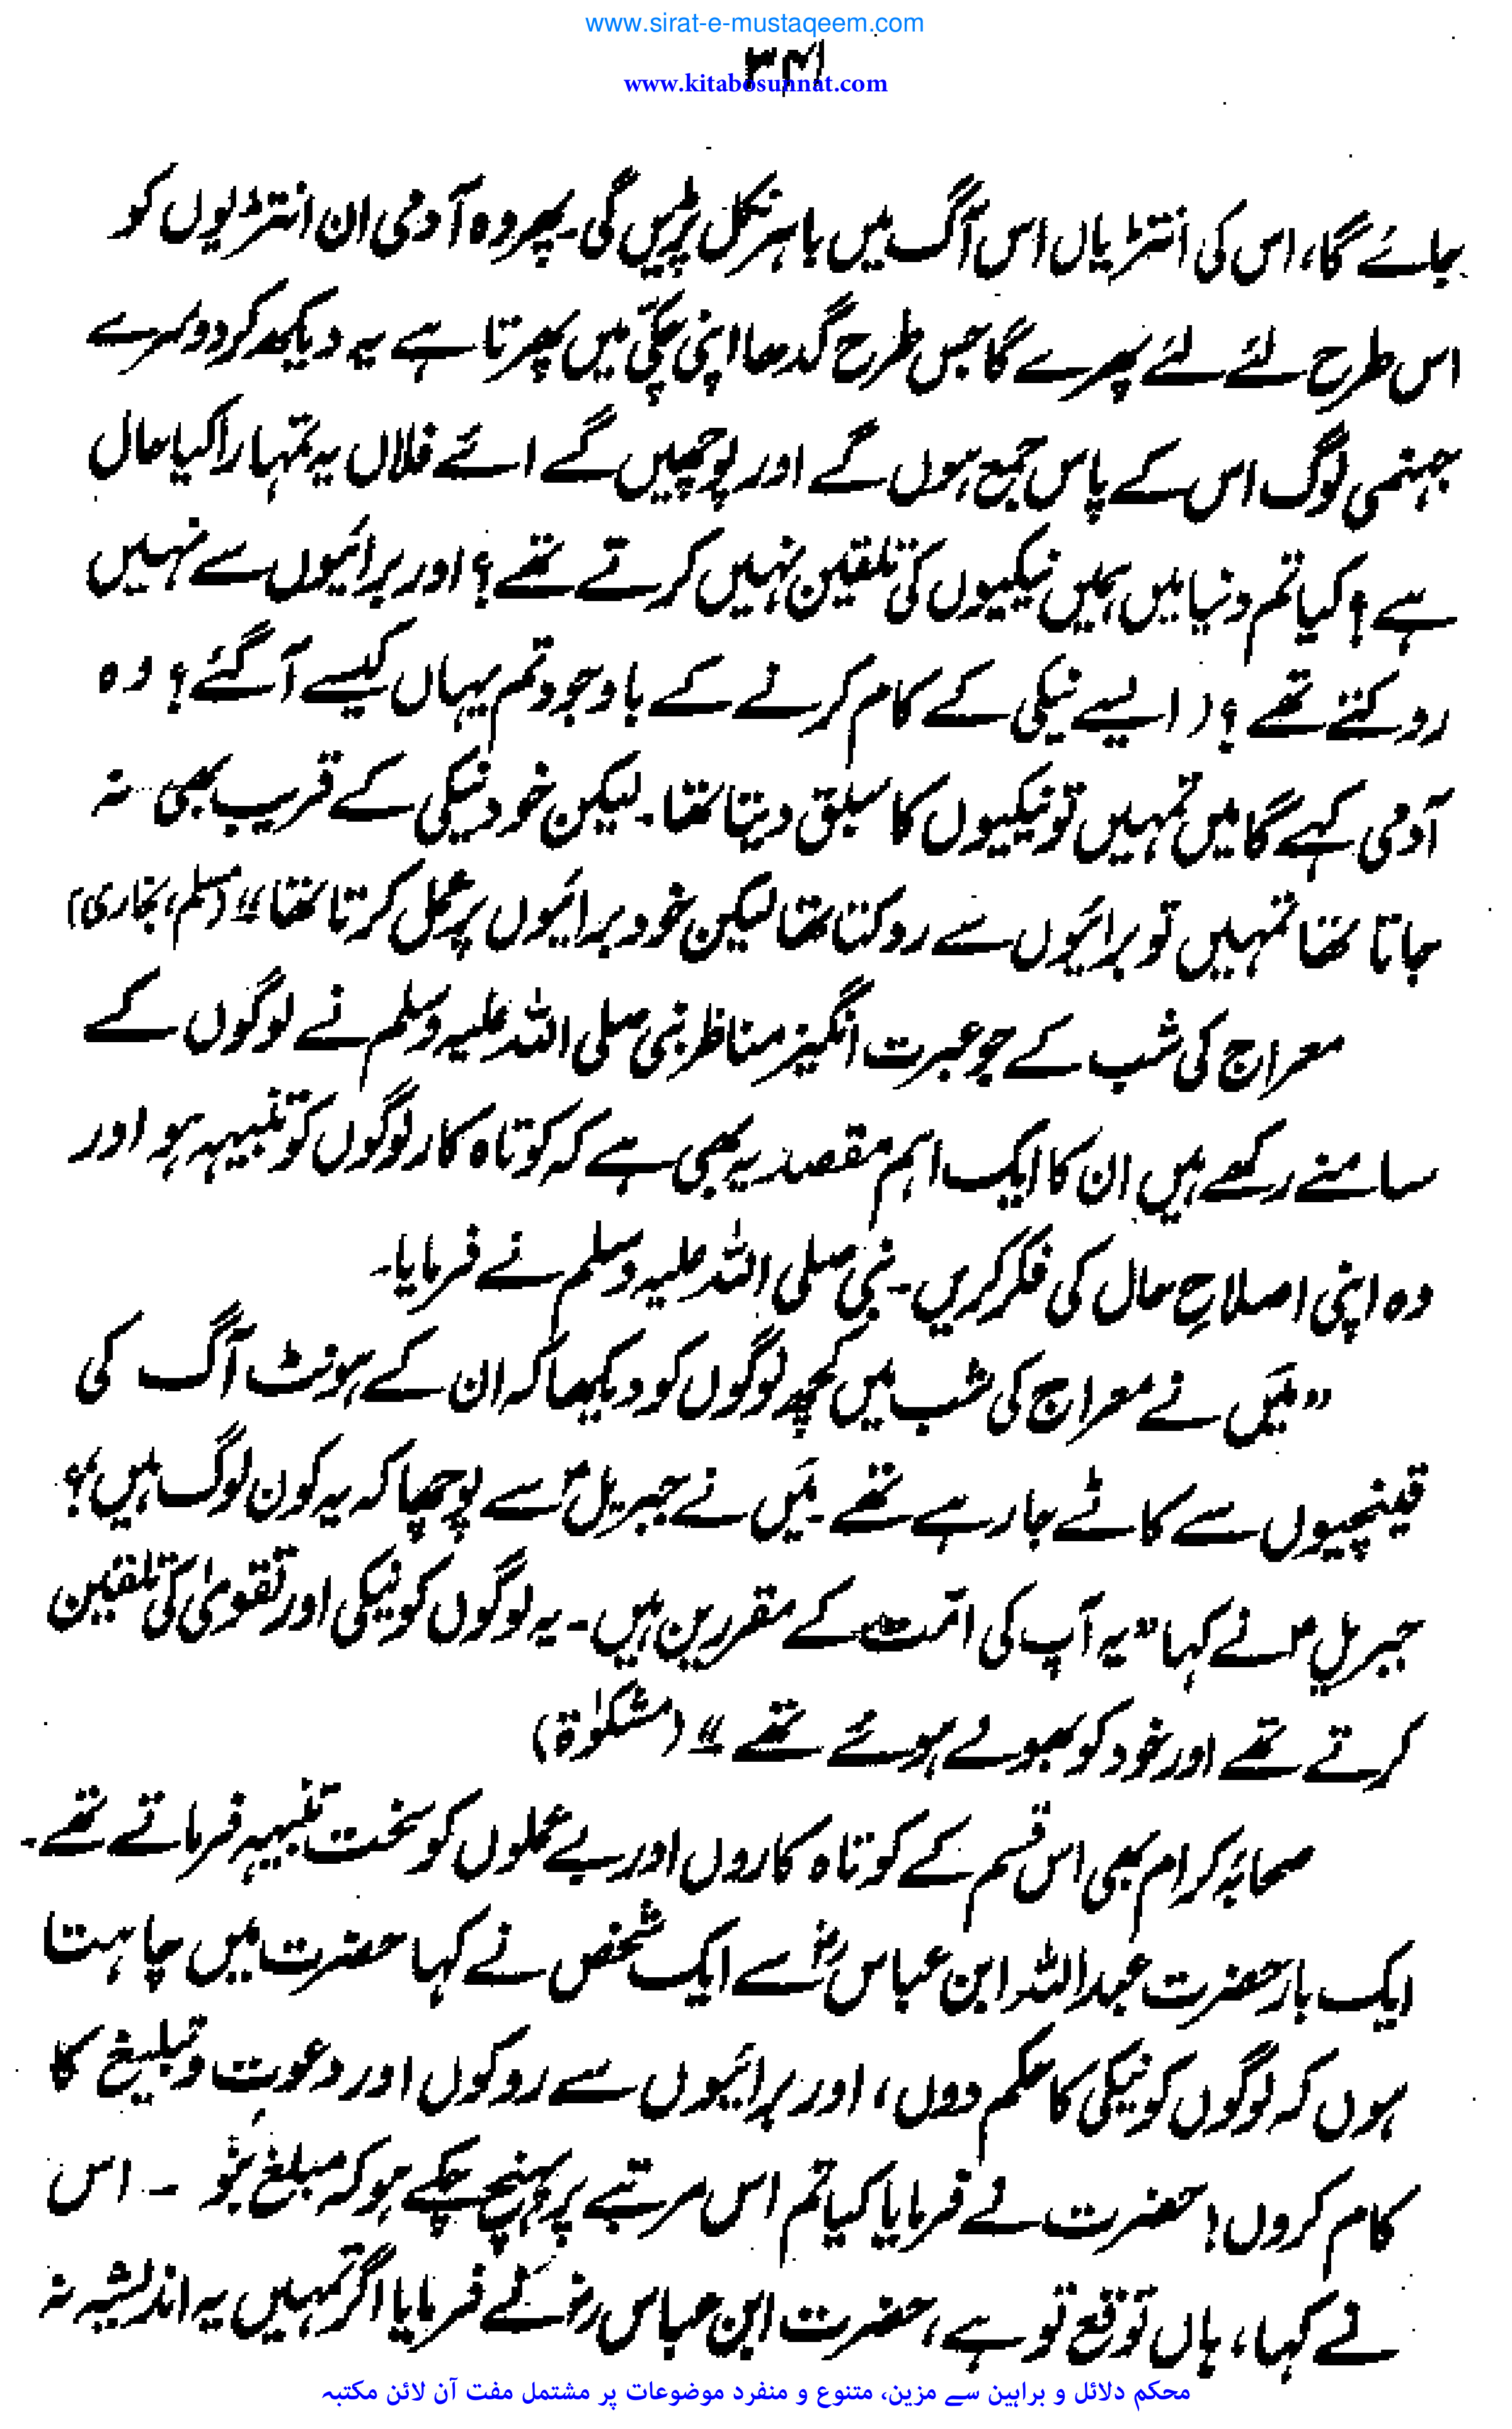 www.sirat-e-mustaqeem.com
۳۴۱
www.kitabosunnat.com
جائے گا، اس کی انتڑیاں اس آگ میں باہر نکل پڑیں گی۔ پھر وہ آدمی ان انتڑیوں کو
اس طرح لئے لئے پھرے گا جس طرح گدھا اپنی چکّی میں پھرتا ہے یہ دیکھ کر دوسرے
جہنمی لوگ اس کے پاس جمع ہوں گے اور پوچھیں گے اے فلاں یہ تمہارا کیا حال
ہے؟ کیا تم دنیا میں ہمیں نیکیوں کی تلقین نہیں کرتے تھے؟ اور برائیوں سے نہیں
روکتے تھے؟ (ایسے نیکی کے کام کرنے کے باوجود تم یہاں کیسے آگئے؟ وہ
آدمی کہے گا میں تمہیں تو نیکیوں کا سبق دیتا تھا۔ لیکن خود نیکی کے قریب بھی نہ
جاتا تھا تمہیں تو برائیوں سے روکتا تھا لیکن خود برائیوں پر عمل کرتا تھا" (مسلم، بخاری)
معراج کی شب کے جو عبرت انگیز مناظر نبی صلی اللہ علیہ وسلم نے لوگوں کے
سامنے رکھے ہیں ان کا ایک اہم مقصد یہ بھی ہے کہ کوتاہ کار لوگوں کو تنبیہہ ہو اور
وہ اپنی اصلاحِ حال کی فکر کریں۔ نبی صلی اللہ علیہ وسلم نے فرمایا۔
"میَں نے معراج کی شب میں کچھ لوگوں کو دیکھا کہ ان کے ہونٹ آگ کی
قینچیوں سے کاٹے جا رہے تھے۔ میَں نے جبریلؑ سے پوچھا کہ یہ کون لوگ ہیں؟
جبریلؑ نے کہا "یہ آپ کی امّت کے مقررین ہیں۔ یہ لوگوں کو نیکی اور تقویٰ کی تلقین
کرتے تھے اور خود کو بھولے ہوئے تھے" (مشکوٰۃ)
صحابۂ کرام بھی اس قسم کے کوتاہ کاروں اور بے عملوں کو سخت تنبیہہ فرماتے تھے۔
ایک بار حضرت عبداللہ ابن عباسؓ سے ایک شخص نے کہا حضرت میں چاہتا
ہوں کہ لوگوں کو نیکی کا حکم دوں، اور برائیوں سے روکوں اور دعوت و تبلیغ کا
کام کروں! حضرت نے فرمایا کیا تم اس مرتبے پر پہنچ چکے ہو کہ مبلغ بنو۔ اس
نے کہا، ہاں توقع تو ہے، حضرت ابن عباسؓ نے فرمایا اگر تمہیں یہ اندیشہ نہ
محکم دلائل و براہین سے مزین، متنوع و منفرد موضوعات پر مشتمل مفت آن لائن مکتبہ